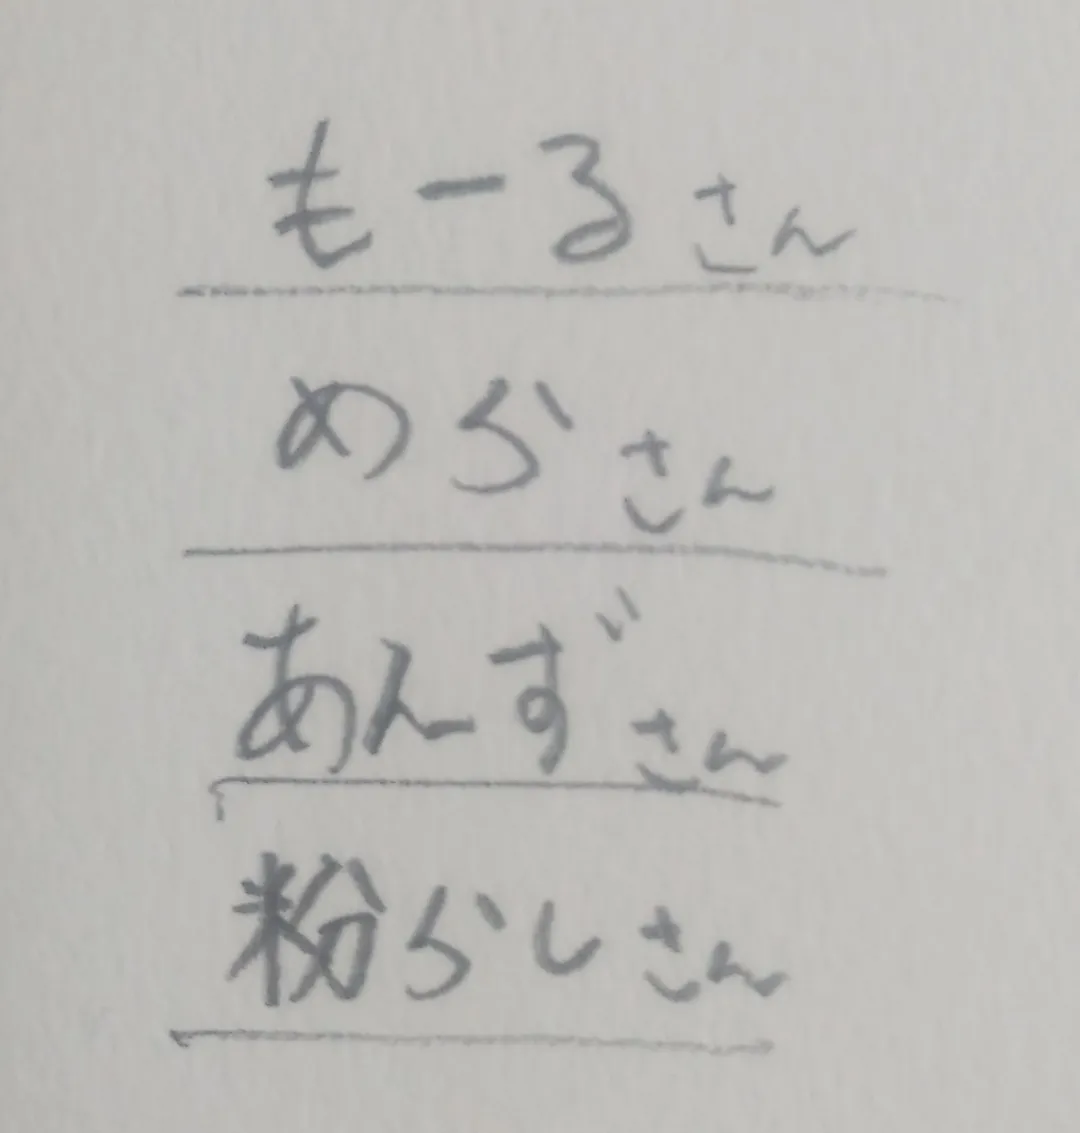 もーるさん
めからさん
あんずさん
粉からしさん